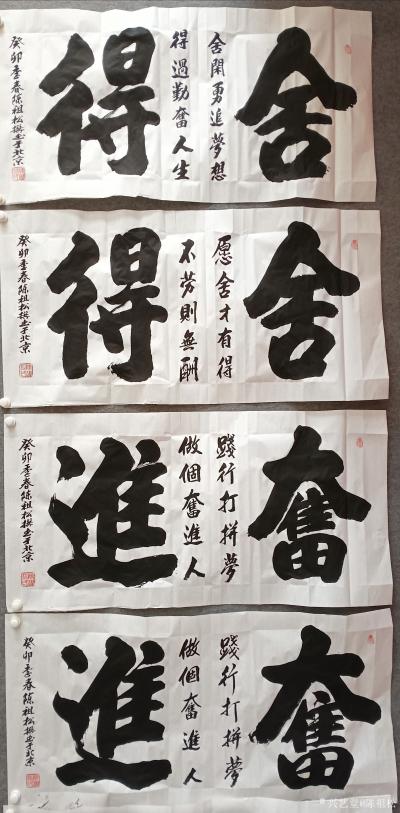 舍
舍閑勇追夢想
得過勤奮人生
得
癸卯季春陈祖松撰书于北京
舍
愿舍才有得
不劳則無酬
得
癸卯季春陈祖松撰书于北京
奮
踐行打拼夢
做個奮進人
進
癸卯季春陈祖松撰书于北京
奮
踐行打拼夢
做個奮進人
進
癸卯季春陈祖松撰书于北京
兴艺堂#陈祖松